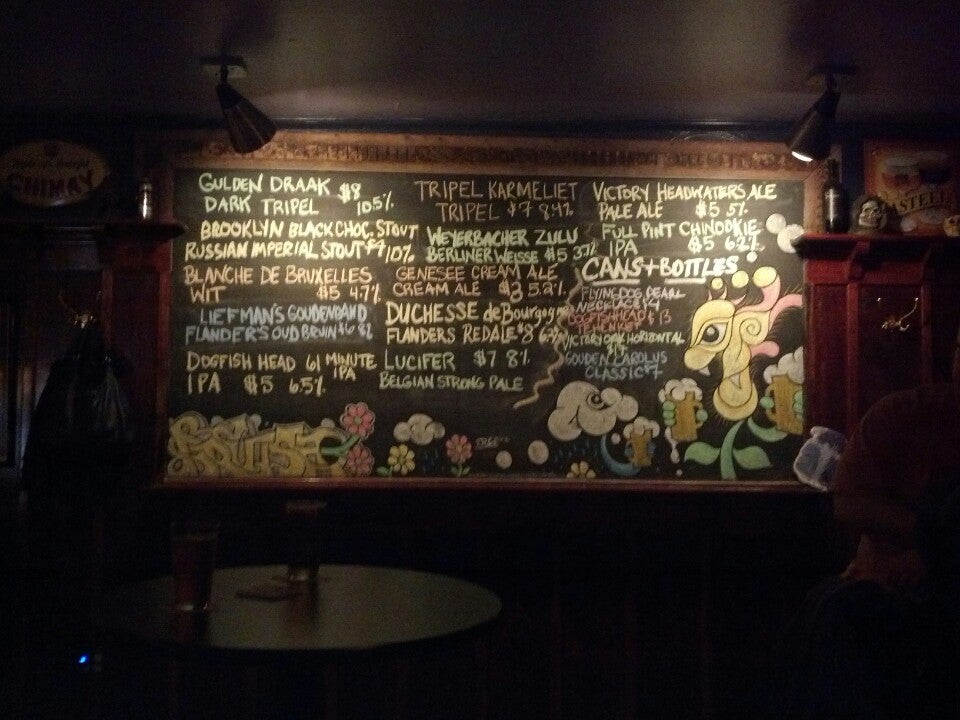 CHIMAY
GULDEN DRAAK $8
DARK TRIPEL 10.5%
BROOKLYN BLACK CHOC. STOUT
RUSSIAN IMPERIAL STOUT $7 10%
BLANCHE DE BRUXELLES
WIT $5 4.7%
LIEFMAN'S GOUDENBAND
FLANDER'S OUD BRUIN $6 82
DOGFISH HEAD 61 MINUTE
IPA $5 6.5% IPA
TRIPEL KARMELIET
TRIPEL $7 8.4%
WEYERBACHER ZULU
BERLINER WEISSE $5 3.7%
GENESEE CREAM ALE
CREAM ALE $3 5.2%
DUCHESSE de Bourgogne
FLANDERS RED ALE $8
LUCIFER $7 8%
BELGIAN STRONG PALE
VICTORY HEADWATERS ALE
PALE ALE $5 5%
FULL PINT CHINOOKIE
IPA $5 6.2%
CANS + BOTTLES
FLYING DOG PEARL
NECKLACE $4
DOGFISH HEAD $13
VICTORY ORK HORIZONTAL
GOUDEN CAROLUS
CLASSIC $7